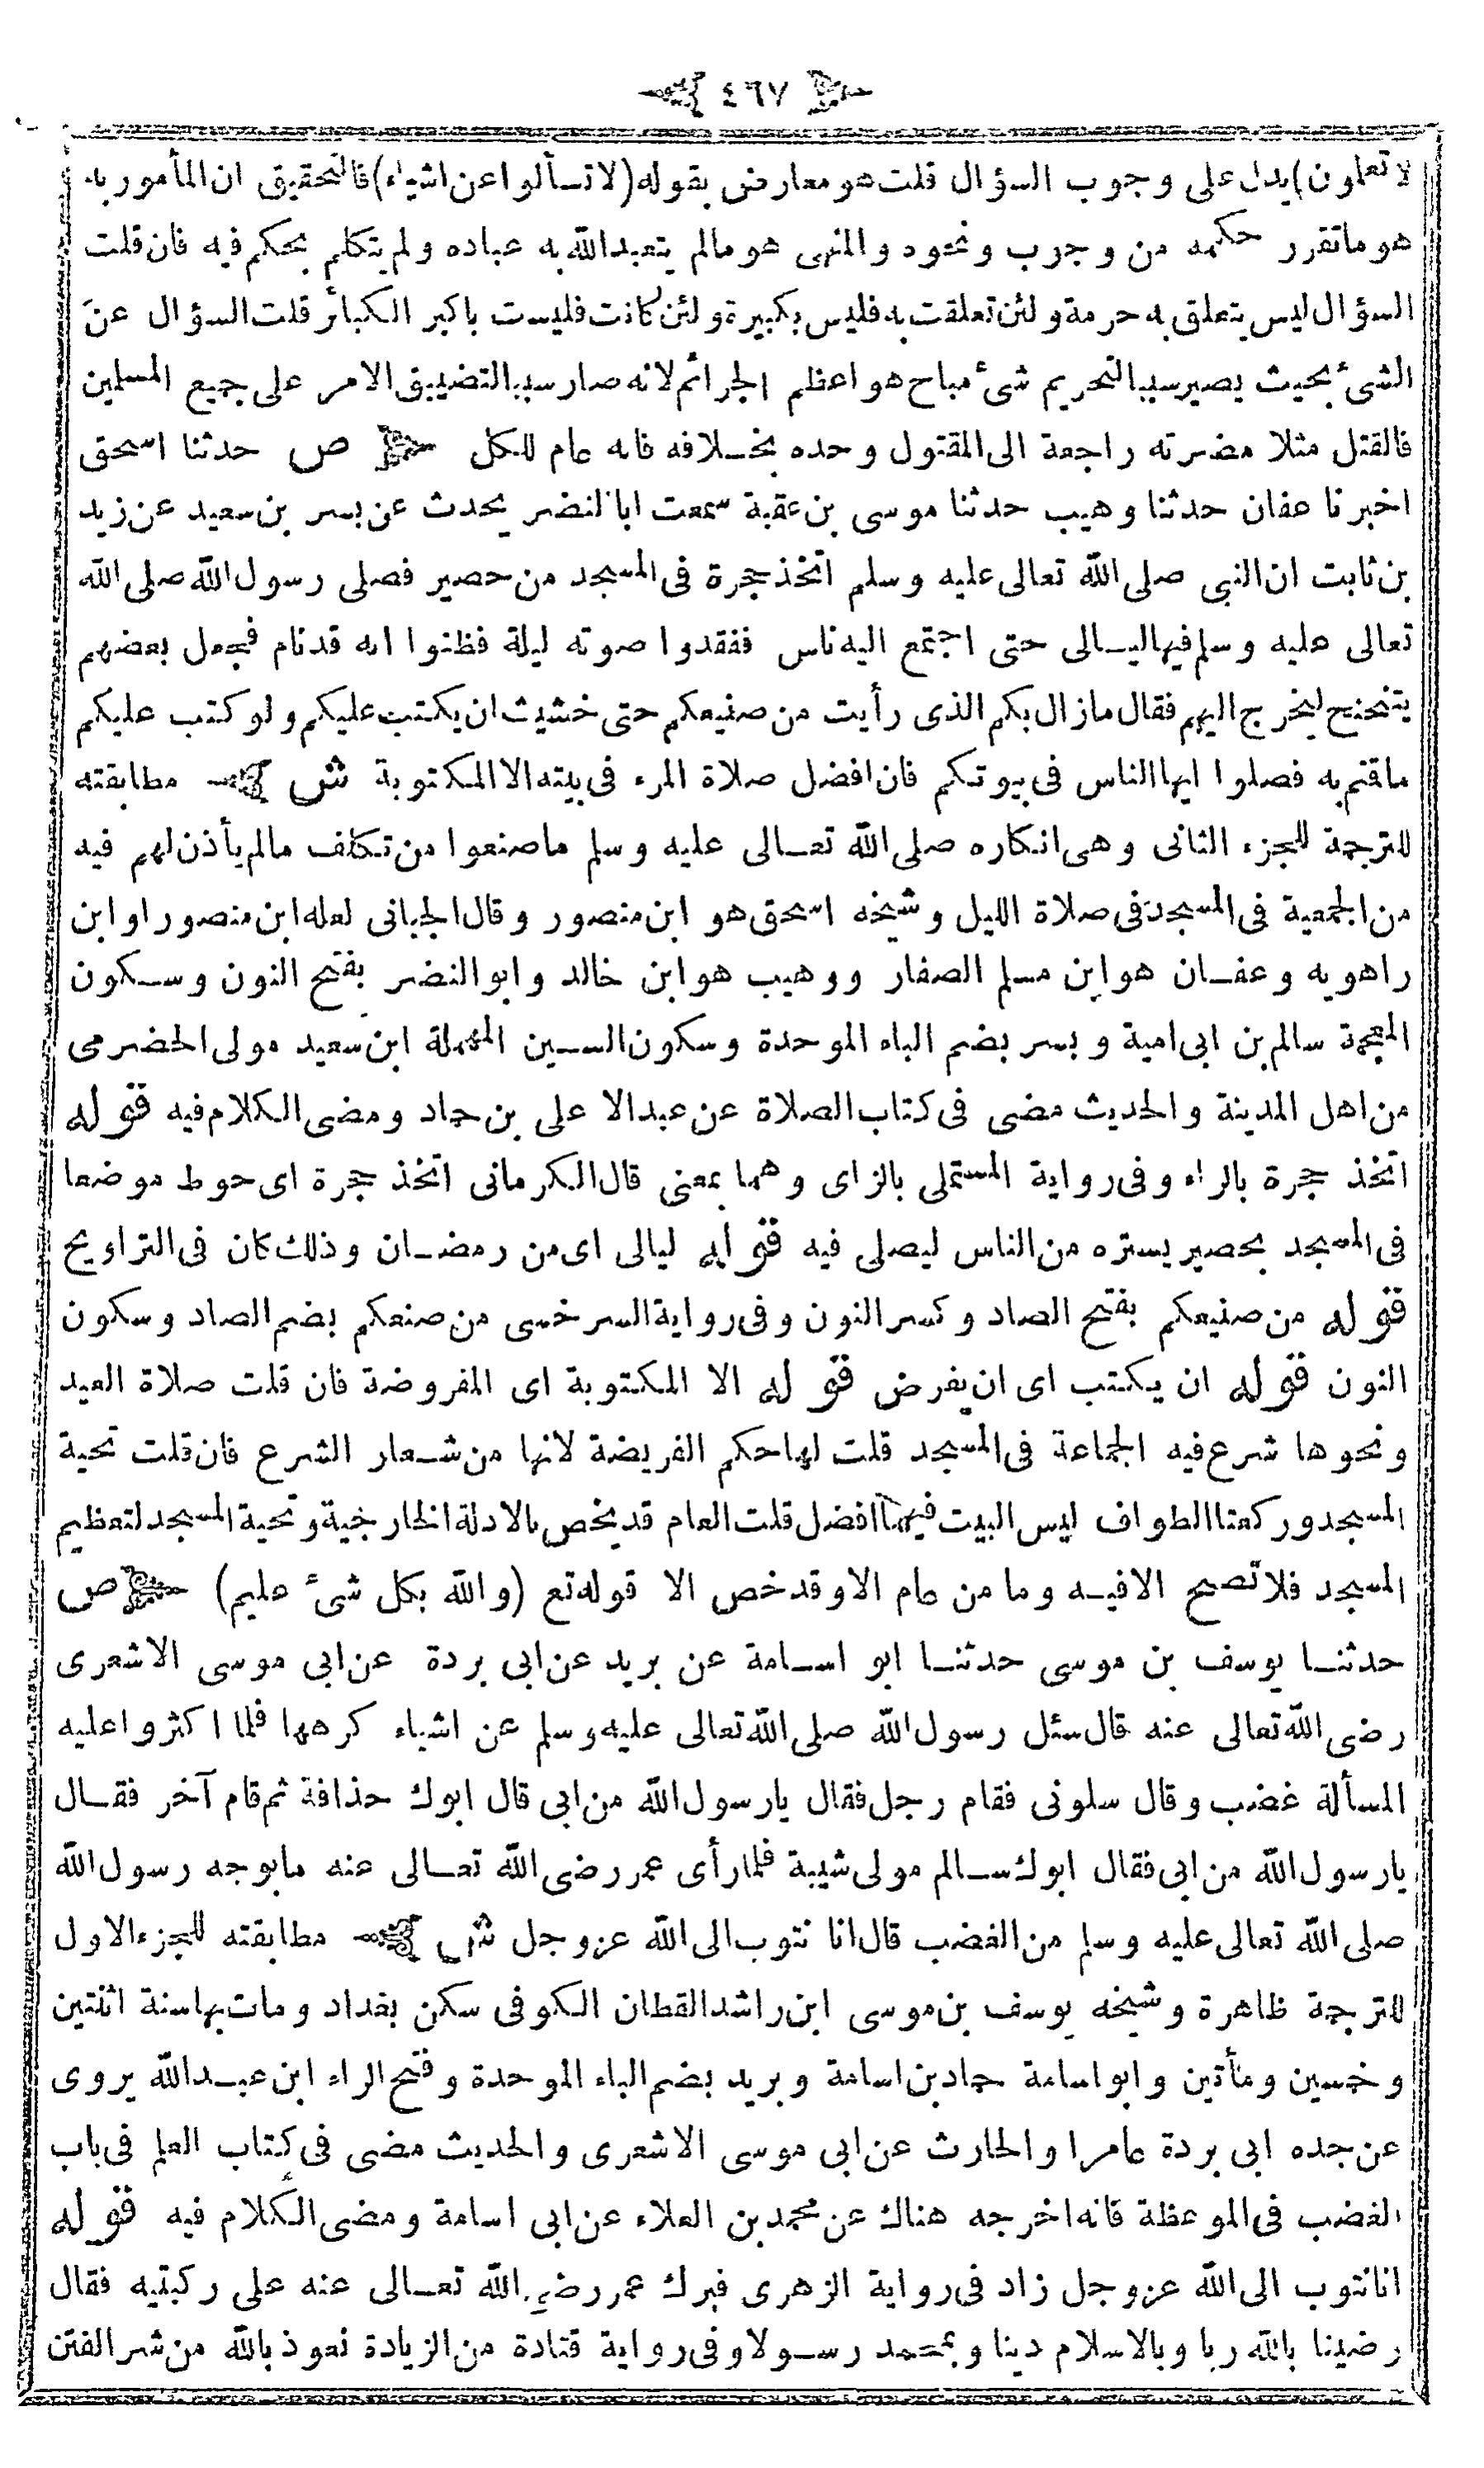 ٤٦٧
لا تعلمون) يدل على وجوب السؤال قلت هو معارض بقوله (لا تسألوا عن اشياء) فالتحقيق ان المأمور به
هو ما تقرر حكمه من وجوب ونحوه والمنهى هو مالم يتعبد الله به عباده ولم يتكلم بحكم فيه فان قلت
السؤال ليس يتعلق به حرمة ولئن تعلقت به فليس بكبيرة ولئن كانت فليست باكبر الكبائر قلت السؤال عن
الشئ بحيث يصير سببا لتحريم شئ مباح هو اعظم الجرائم لانه صار سببا لتضييق الامر على جميع المسلمين
فالقتل مثلا مضرته راجعة الى المقتول وحده بخلافه فانه عام للكل ص حدثنا اسحق
اخبرنا عفان حدثنا وهيب حدثنا موسى بن عقبة سمعت ابا النضر يحدث عن بسر بن سعيد عن زيد
بن ثابت ان النبى صلى الله تعالى عليه وسلم اتخذ حجرة فى المسجد من حصير فصلى رسول الله صلى الله
تعالى عليه وسلم فيها ليالى حتى اجتمع اليه ناس ففقدوا صوته ليلة فظنوا انه قد نام فجعل بعضهم
يتنحنح ليخرج اليهم فقال مازال بكم الذى رأيت من صنيعكم حتى خشيت ان يكتب عليكم ولو كتب عليكم
ما قتم به فصلوا ايها الناس فى بيوتكم فان افضل صلاة المرء فى بيته الا المكتوبة ش مطابقته
للترجمة للجزء الثانى وهى انكاره صلى الله تعالى عليه وسلم ما صنعوا من تكلف مالم يأذن لهم فيه
من الجمعية فى المسجد فى صلاة الليل وشيخه اسحق هو ابن منصور وقال الجيانى لعله ابن منصور او ابن
راهويه وعفان هو ابن مسلم الصفار ووهيب هو ابن خالد وابو النضر بفتح النون وسكون
المعجمة سالم بن ابى امية وبسر بضم الباء الموحدة وسكون السين المهملة ابن سعيد مولى الحضرمى
من اهل المدينة والحديث مضى فى كتاب الصلاة عن عبد الا على بن حماد ومضى الكلام فيه قوله
اتخذ حجرة بالراء وفى رواية المستملى بالزاى وهما بمعنى قال الكرمانى اتخذ حجرة اى حوط موضعا
فى المسجد بحصير يستره من الناس ليصلى فيه قوله ليالى اى من رمضان وذلك كان فى التراويح
قوله من صنيعكم بفتح الصاد وكسر النون وفى رواية السرخسى من صنعكم بضم الصاد وسكون
النون قوله ان يكتب اى ان يفرض قوله الا المكتوبة اى المفروضة فان قلت صلاة العيد
ونحوها شرع فيه الجماعة فى المسجد قلت لها حكم الفريضة لانها من شعار الشرع فان قلت تحية
المسجد وركعتا الطواف ليس البيت فيهما افضل قلت العام قد يخص بالادلة الخارجية وتحية المسجد لتعظيم
المسجد فلا تصح الا فيه وما من عام الا وقد خص الا قوله تع (والله بكل شئ عليم) ص
حدثنا يوسف بن موسى حدثنا ابو اسامة عن بريد عن ابى بردة عن ابى موسى الاشعرى
رضى الله تعالى عنه قال سئل رسول الله صلى الله تعالى عليه وسلم عن اشياء كرهها فلما اكثروا عليه
المسألة غضب وقال سلونى فقام رجل فقال يارسول الله من ابى قال ابوك حذافة ثم قام آخر فقال
يارسول الله من ابى فقال ابوك سالم مولى شيبة فلما رأى عمر رضى الله تعالى عنه مابوجه رسول الله
صلى الله تعالى عليه وسلم من الغضب قال انا نتوب الى الله عزوجل ش مطابقته للجزء الاول
للترجمة ظاهرة وشيخه يوسف بن موسى ابن راشد القطان الكوفى سكن بغداد ومات بها سنة اثنتين
وخمسين ومأتين وابو اسامة حماد بن اسامة وبريد بضم الباء الموحدة وفتح الراء ابن عبد الله يروى
عن جده ابى بردة عامر او الحارث عن ابى موسى الاشعرى والحديث مضى فى كتاب العلم فى باب
الغضب فى الموعظة فانه اخرجه هناك عن محمد بن العلاء عن ابى اسامة ومضى الكلام فيه قوله
انا نتوب الى الله عزوجل زاد فى رواية الزهرى فبرك عمر رضى الله تعالى عنه على ركبتيه فقال
رضينا بالله ربا وبالاسلام دينا وبمحمد رسولا وفى رواية قتادة من الزيادة نعوذ بالله من شر الفتن